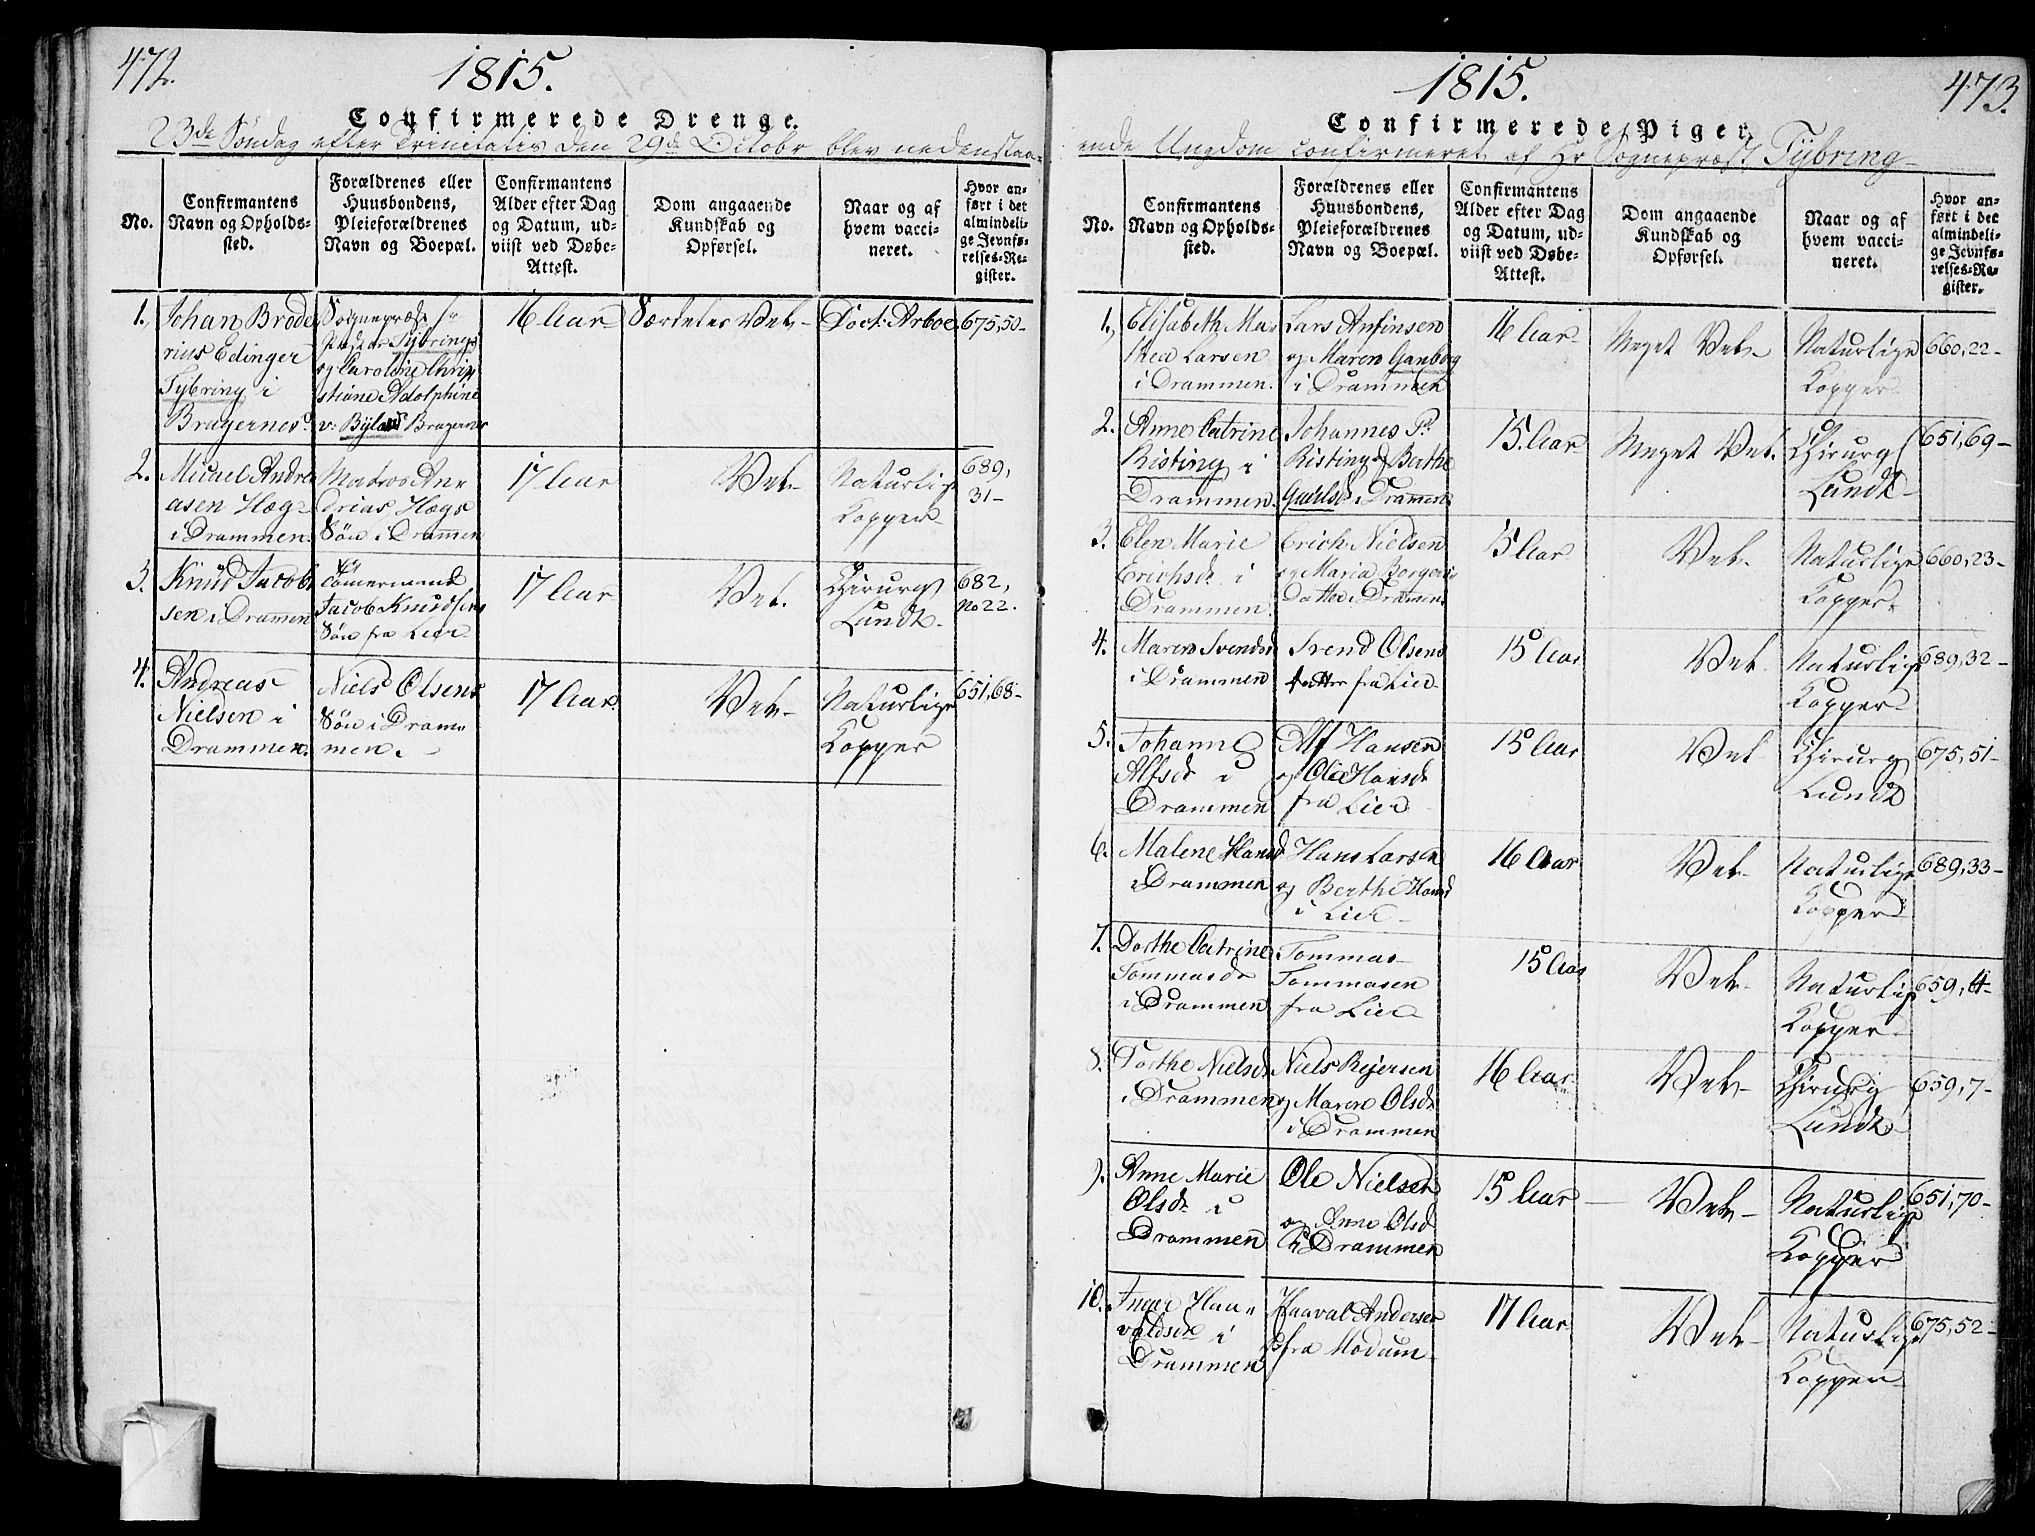 472.
1815.
Confirmerede Drenge.
23de Søndag efter Trinitatis den 29de Octobr blev nedenstaa-
No.
Confirmantens
Navn og Opholds-
sted.
Forældrenes eller
Huusbondens,
Pleieforældrenes
Navn og Boepæl.
Confirmantens
Alder efter Dag
og Datum, ud-
viist ved Døbe-
Attest.
Dom angaaende
Kundskab og
Opførsel.
Naar og af
hvem vacci-
neret.
Hvor an-
ført i det
almindeli-
ge Jevnfø-
relses-Re-
gister.
1.
Johan Brode
rius Edinger
Tybring i
Bragernes.
Sognepræst
Tybrings
og Caroline Chri
stiane Adolphine
v: Bylow Bragernes
16 Aar
Særdeles Vel
Doct: Arboe
675,50-
2.
Micael Andre
asen Hæg
i Drammen.
Matros An-
drias Hægs
Søn i Drammen
17 Aar
Vel
Naturlige
Kopper
689,
31-
3.
Knud Jacob
sen i Drammen
Tømermand
Jacob Knudsens
Søn fra Lier
17 Aar
Vel.
Chirurg
Lundt
682,
No 22.
4.
Andreas
Nielsen i
Drammen.
Niels Olsens
Søn i Dram-
men.
17 Aar
Vel
Naturlige
Kopper
651,68-
473.
1815.
Confirmerede Piger.
ende Ungdom confirmeret af Hr Sognepræst Tybring
No.
Confirmantens
Navn og Opholds-
sted.
Forældrenes eller
Huusbondens,
Pleieforældrenes
Navn og Boepæl.
Confirmantens
Alder efter Dag
og Datum, ud-
viist ved Døbe-
Attest.
Dom angaaende
Kundskab og
Opførsel.
Naar og af
hvem vacci-
neret.
Hvor an-
ført i det
almindeli-
ge Jevnfø-
relses-Re-
gister.
1.
Elisabeth Ma-
thea Larsen
i Drammen.
Lars Anfinsen
og Maren Ganborg
i Drammen
16 Aar
Meget Vel
Naturlige
Kopper
660,22-
2.
Anne Catrine
Risting i
Drammen.
Johannes P.
Risting og Berthe
i Drammen
15 Aar
Meget Vel.
Chirurg
Lundt
651,69-
3.
Elen Marie
Erichsdr i
Drammen
Erich Nielsen
og Maria Borger
Datter i Drammen
15 Aar
Vel
Naturlige
Kopper
660,23-
4.
Maren Svendsd
i Drammen
Svend Olsens
Datter fra Lier
15 Aar
Vel
Naturlige
Kopper
689,32-
5.
Johanne
Alfsdr i
Drammen
Alf Hansen
og Olia Hansdr
fra Lier
15 Aar
Vel
Chirurg
Lundt
675,51-
6.
Malene Hansd
i Drammen
Hans Larsen
og Berthe Hansd
i Lier
16 Aar
Vel
Naturlige
Kopper
689,33-
7.
Dorthe Catrine
Tommasdr
i Drammen
Tommas
Tommasen
fra Lier
15 Aar
Vel
Naturlige
Kopper
659,
8.
Dorthe Nielsdr
i Drammen
Niels Reiersen
og Maren Olsdr
i Drammen
16 Aar
Vel
Chirurg
Lundt
659,7-
9.
Anne Marie
Olsdr i
Drammen
Ole Nielsen
og Anne Olsd
i Drammen
15 Aar
Vel
Naturlige
Kopper
651,70-
10.
Inger Haa-
valdsen i
Drammen
Haaval Andersen
fra Modum
17 Aar
Vel
Naturlige
Kopper
675,52-